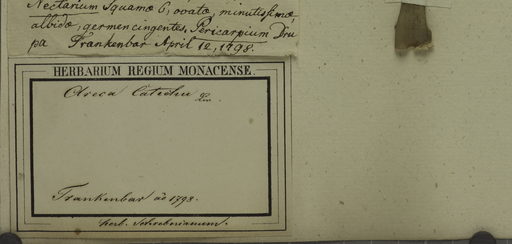 Nectarium Squamæ 6, ovatæ, minutissimæ
albidæ, germen cingentes. Pericarpium Dru
pa Trankenbar April 12, 1798.
HERBARIUM REGIUM MONACENSE.
Areca Catechu
Trankenbar ad 1798.
herb. Schreberianum.